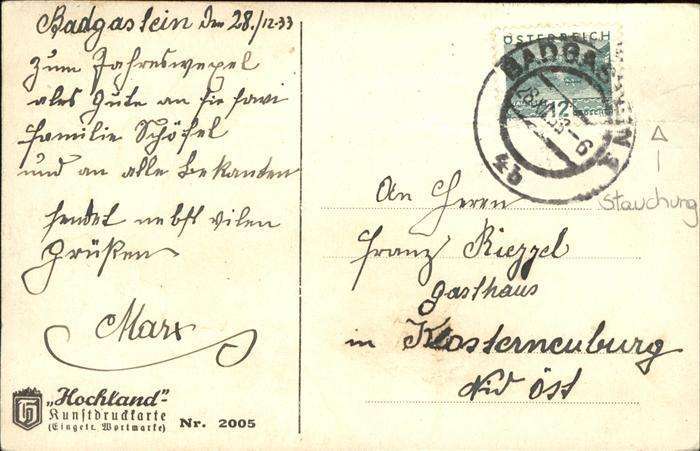 Badgastein den 28./12-33
Zum Jahreswexel
ales Gute an Sie sawi
familie Schöfel
und an alle bekanten
sendet nebst vilen
Grüßen
Marx
„Hochland"-
Kunstdruckkarte
(Eingetr. Wortmarke) Nr. 2005
ÖSTERREICH
12 GROSCHEN
BADGASTEIN
28.XII.33-6
4b
Stauchung
An Herrn
Franz Riezzel
Gasthaus
in Klosterneuburg
Nid Öst